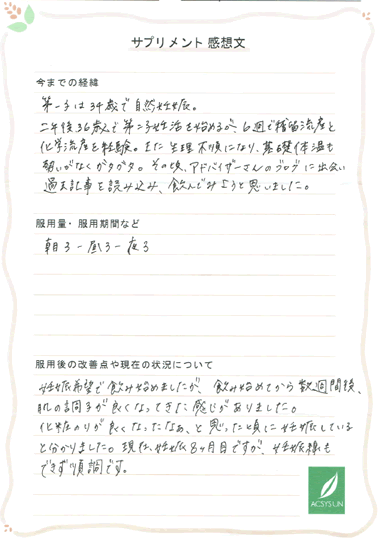 サプリメント 感想文
今までの経緯
第一子は34歳で自然妊娠。
二年後36歳で第二子妊活を始めるが、6週で稽留流産と
化学流産を経験。また生理不順になり、基礎体温も
揃いがなくガタガタ。その頃、アドバイザーさんのブログに出会い
過去記事を読み込み、飲んでみようと思いました。
服用量・服用期間など
朝3-昼3-夜3
服用後の改善点や現在の状況について
妊娠希望で飲み始めましたが、飲み始めてから数週間後、
肌の調子が良くなってきた感じがありました。
化粧のりが良くなったなぁ、と思った頃に妊娠している
と分かりました。現在、妊娠8ヶ月目ですが、妊娠線も
できず順調です。
ACSYSUN